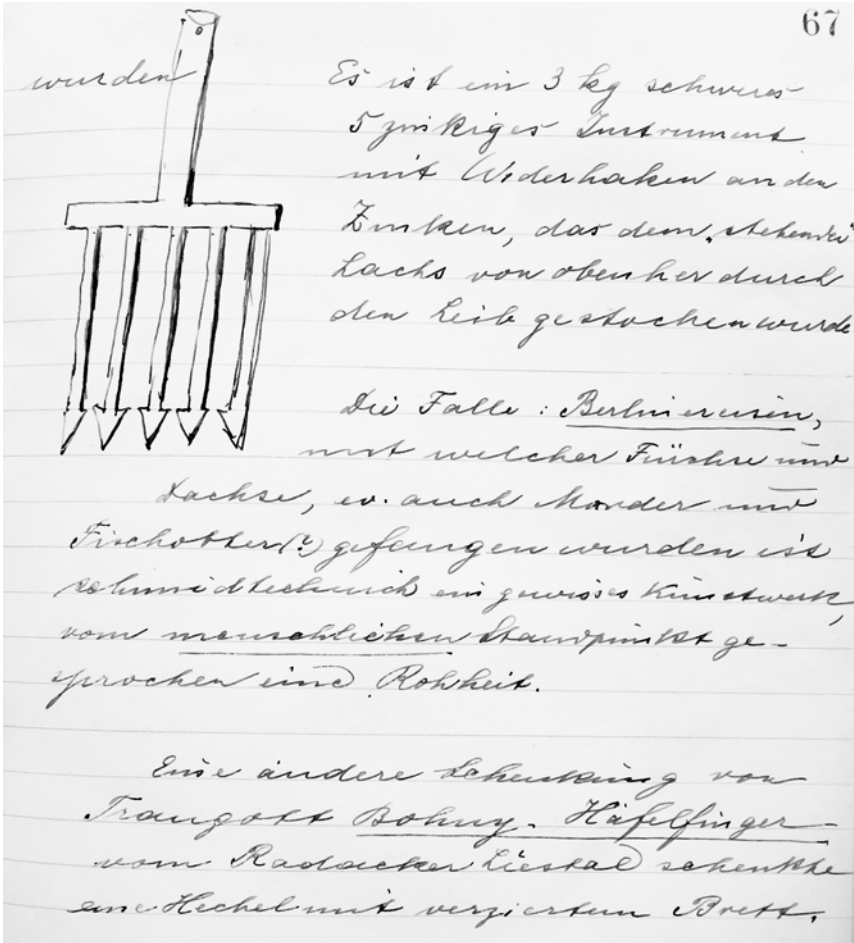 67
wurden
Es ist ein 3 kg schweres
5 zinkiges Instrument
mit Widerhaken an den
Zinken, das dem „stehenden“
Lachs von obenher durch
den Leib gestochen wurde
Die Falle: Berlinereisen,
mit welcher Füchse und
Dachse, ev. auch Marder und
Fischotter (?) gefangen wurden ist
schmidtechnisch ein gewisses Kunstwerk,
vom menschlichen Standpunkt ge-
sprochen eine Rohheit.
Eine andere Schenkung von
Traugott Bohny-Häfelfinger
vom Radacker Liestal schenkte
eine Hechel mit verziertem Brett.